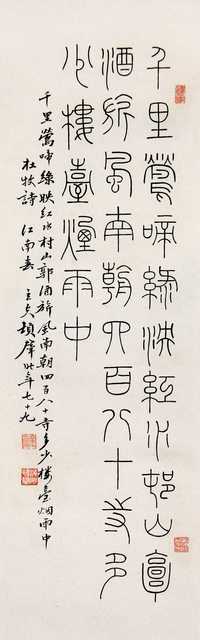 千里鶯啼綠映紅水邨山郭
酒旂風南朝四百八十寺多
少樓臺煙雨中
千里鶯啼綠映紅水村山郭酒旂風南朝四百八十寺多少楼臺烟雨中
杜牧詩 江南春 时年七十九